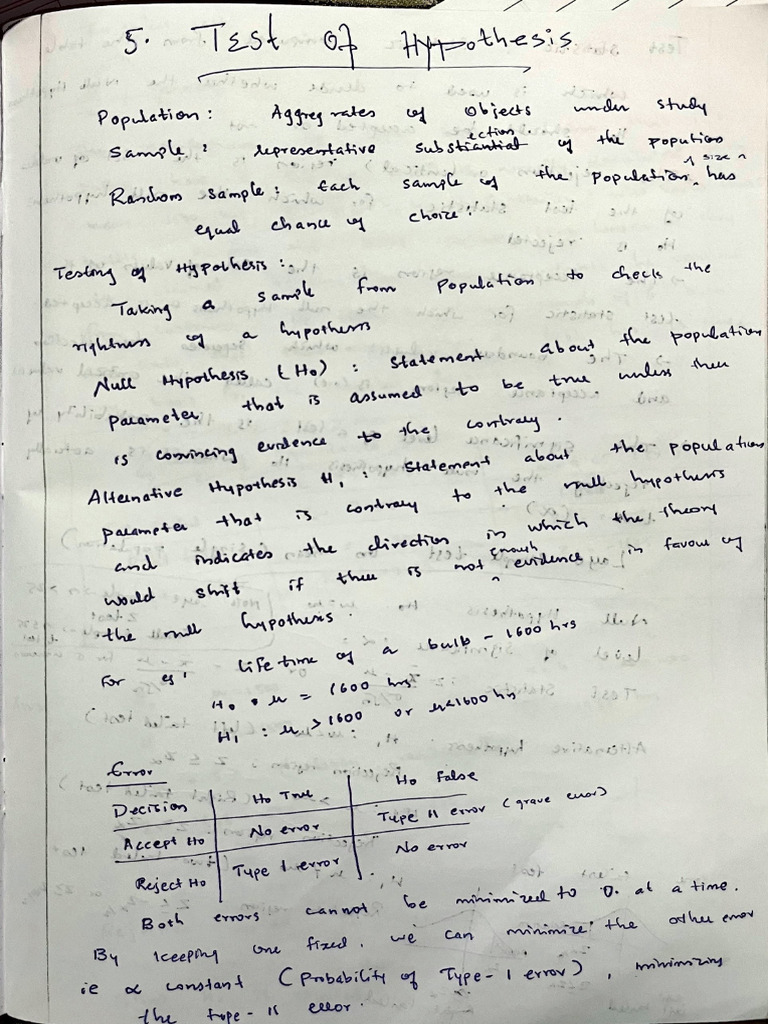 5. Test Of Hypothesis
Population : Aggregrates of Objects under study
Sample : representative substantial ection of the popution
Random sample : Each sample of the population size has
equal chance of choice.
Testing of Hypothesis :
Taking a sample from population to check the
rightness of a hypothesis
Null Hypothesis (H0) : Statement about the population
parameter that is assumed to be true unless there
is convincing evidence to the contrary.
Alternative Hypothesis H1 : Statement about the population
parameter that is contrary to the null hypothesis
and indicates the direction in which the theory
would shift if there is not enough evidence in favour of
the null hypothesis.
For eg' life time of a bulb - 1600 hrs
H0 : μ = 1600 hrs
H1 : μ > 1600 or μ<1600 hrs
Error
Decision H0 True H0 False
Accept H0 No error Type II error (grave error)
Reject H0 Type I error No error
Both errors cannot be minimized to 0. at a time.
By keeping one fixed, we can minimize the other error
ie α constant (Probability of Type-I error), minimizing
the type-II error.